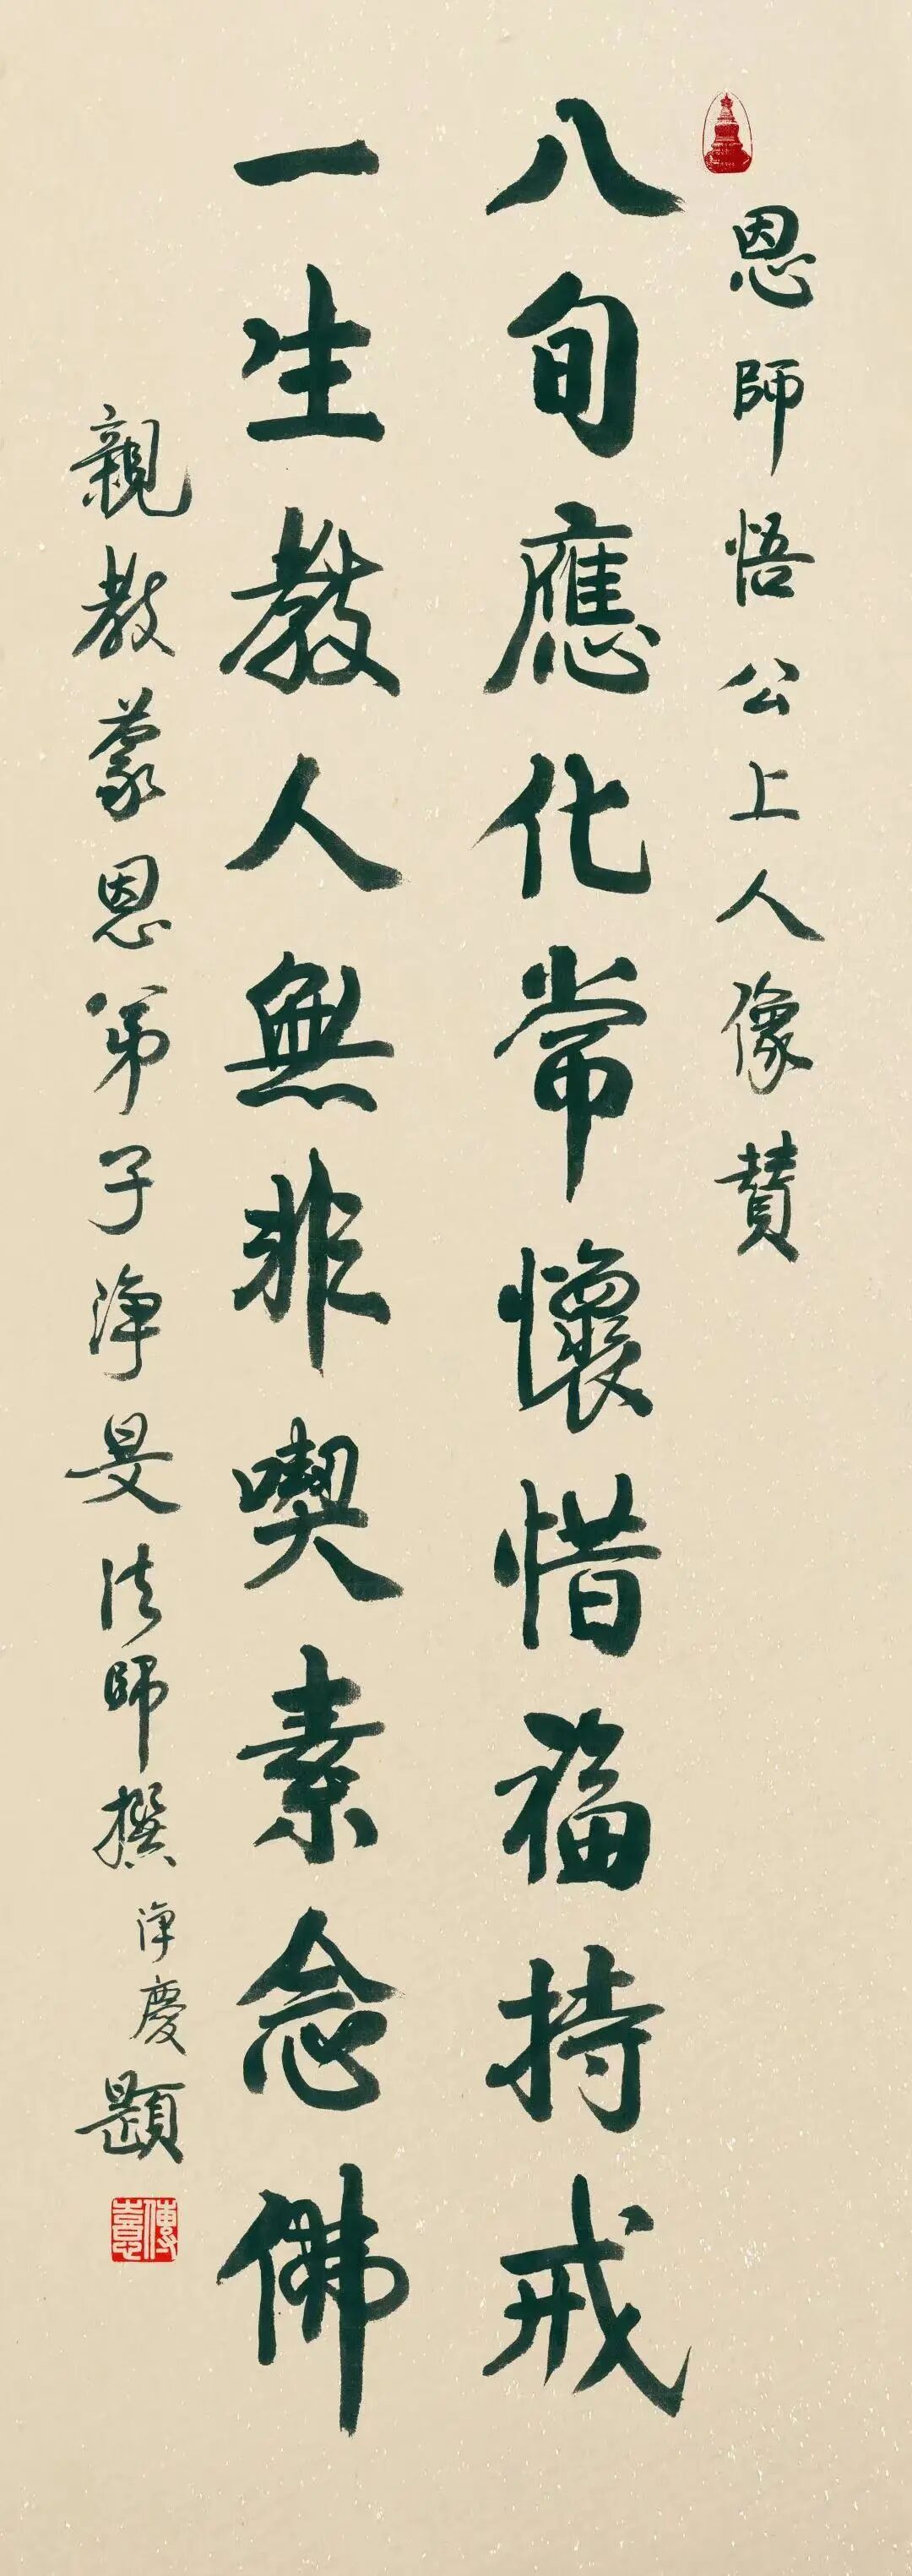 恩師悟公上人像贊
八旬應化常懷惜福持戒
一生教人無非喫素念佛
親教蒙恩弟子淨旻法師撰 淨慶題
傳喜